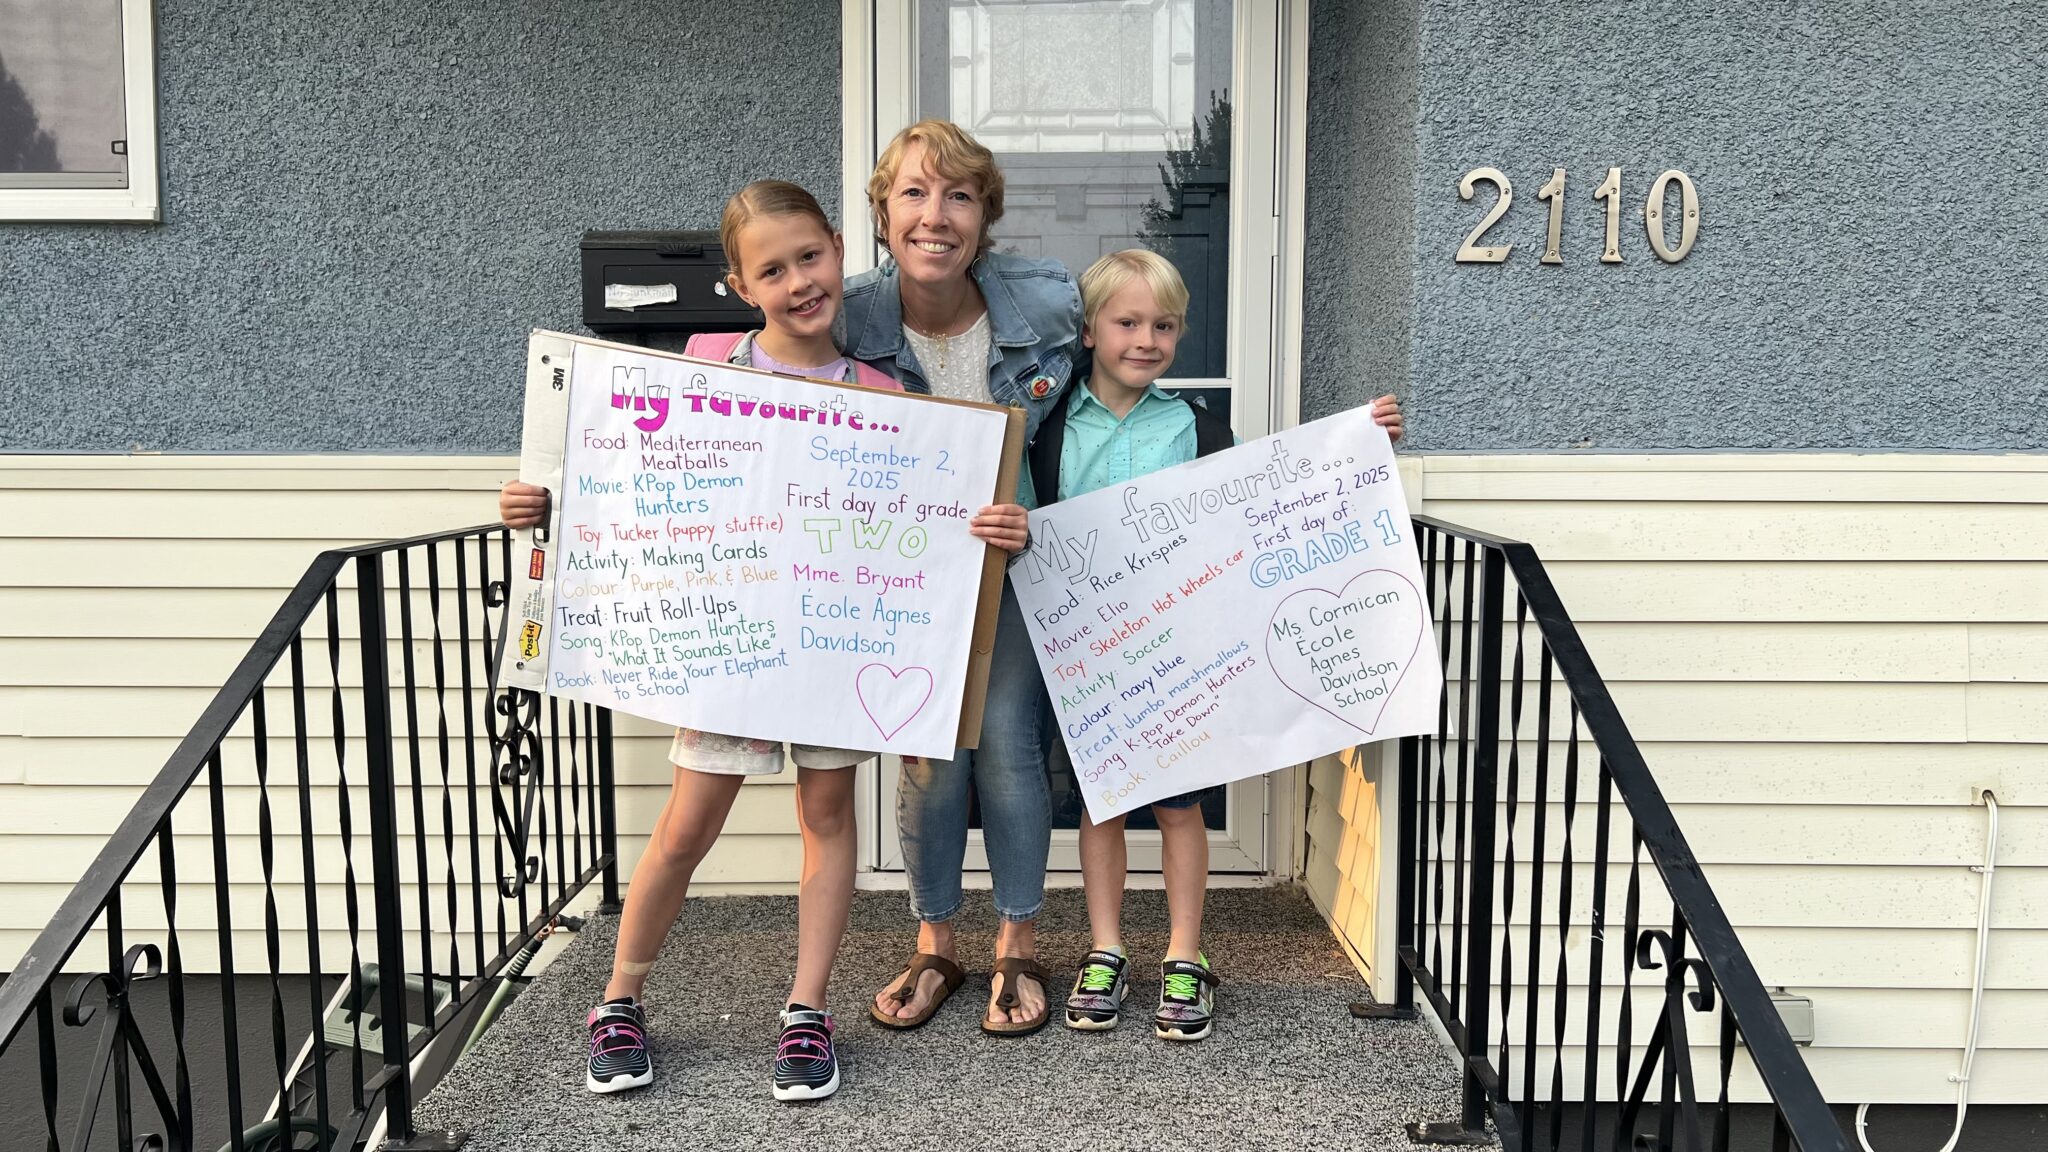 2110
No Junk mail
3M
My favourite...
Food: Mediterranean
Meatballs
Movie: KPop Demon
Hunters
Toy: Tucker (puppy stuffie)
Activity: Making Cards
Colour: Purple, Pink, & Blue
Treat: Fruit Roll-Ups
Song: KPop Demon Hunters
"What It Sounds Like"
Book: Never Ride Your Elephant
to School
September 2,
2025
First day of grade
TWO
Mme. Bryant
École Agnes
Davidson
Post-it
My favourite...
Food: Rice Krispies
Movie: Elio
Toy: Skeleton Hot Wheels car
Activity: Soccer
Colour: navy blue
Treat: Jumbo marshmallows
Song: K-Pop Demon Hunters
"Take Down"
Book: Caillou
September 2, 2025
First day of:
GRADE 1
Ms. Cormican
École
Agnes
Davidson
School